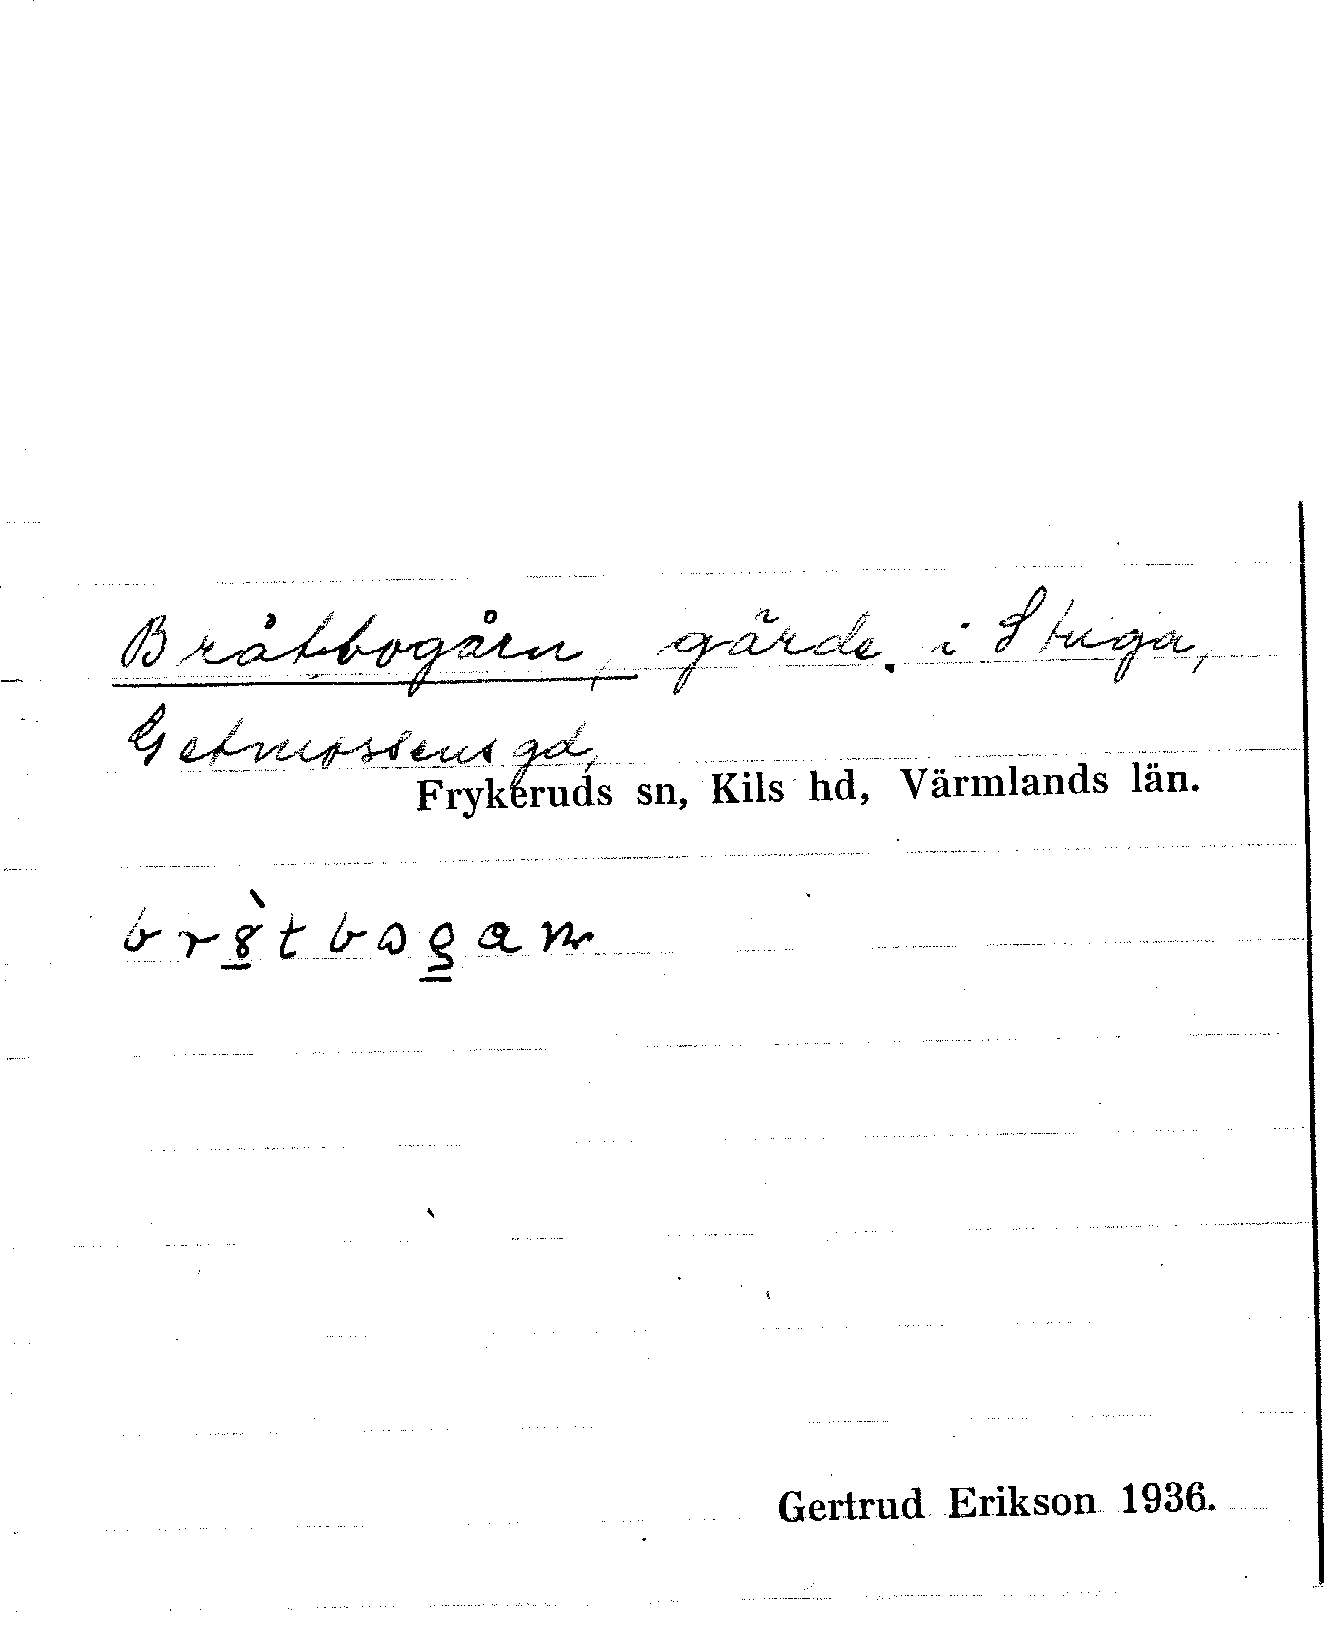 Bråtbogårn, gärde. i Stuga,
Getmossens gd,
Frykeruds sn, Kils hd, Värmlands län.
Gertrud Erikson 1936.